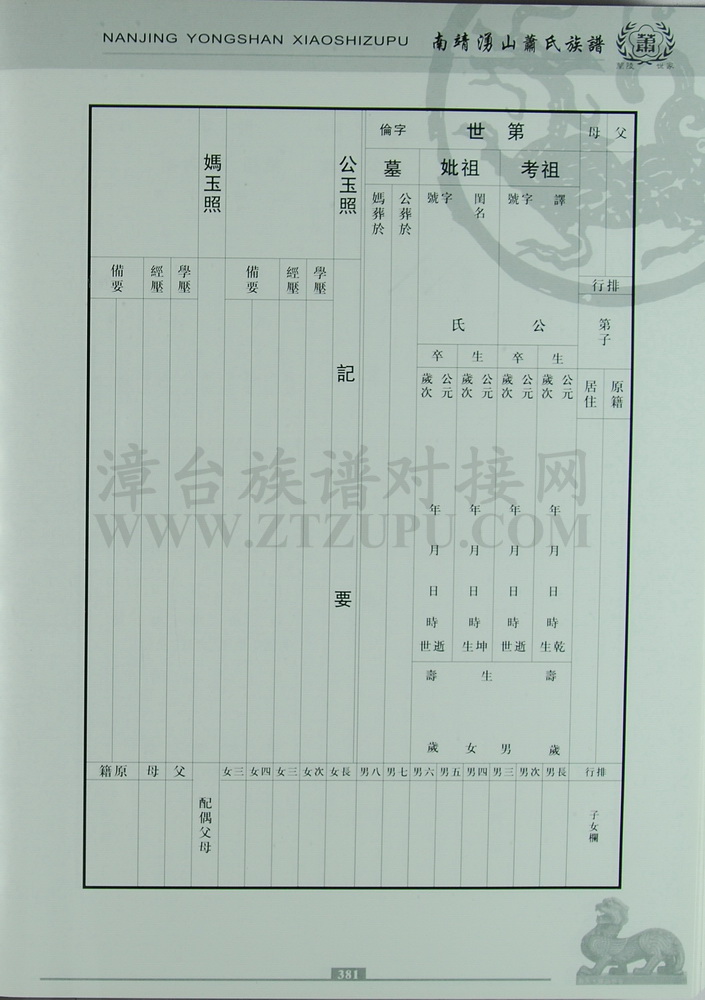 NANJING YONGSHAN XIAOSHIZUPU
南靖湧山蕭氏族譜
蕭
蘭陵
世家
父母
排行
第子
原籍
居住
第世
字倫
祖考
譯
字號
公
生
卒
公元
歲次
年月日時
乾生
公元
歲次
年月日時
逝世
祖妣
閨名
字號
氏
生
卒
公元
歲次
年月日時
坤生
公元
歲次
年月日時
逝世
壽
歲
生
男
女
壽
歲
墓
公葬於
媽葬於
公玉照
記要
學歷
經歷
備要
媽玉照
學歷
經歷
備要
排行
長男
次男
三男
四男
五男
六男
七男
八男
長女
次女
三女
四女
三女
父
母
原籍
子女欄
配偶父母
漳台族谱对接网
WWW.ZTZUPU.COM
381